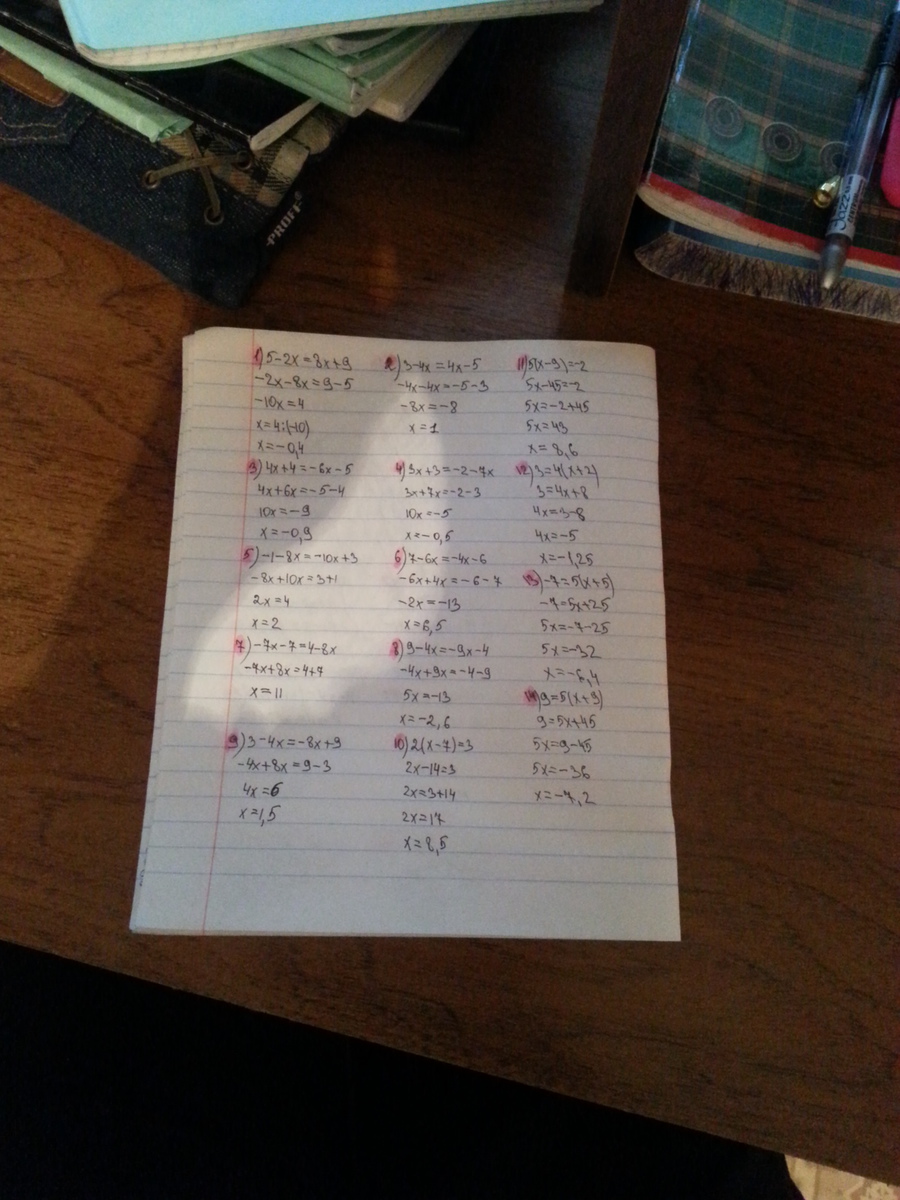 PROFF
Jazz
1) 5-2x=8x+9
-2x-8x=9-5
-10x=4
x=4:(-10)
x=-0,4
2) 3-4x=4x-5
-4x-4x=-5-3
-8x=-8
x=1
3) 4x+4=-6x-5
4x+6x=-5-4
10x=-9
x=-0,9
4) 3x+3=-2-7x
3x+7x=-2-3
10x=-5
x=-0,5
5) -1-8x=-10x+3
-8x+10x=3+1
2x=4
x=2
6) 7-6x=-4x-6
-6x+4x=-6-7
-2x=-13
x=6,5
7) -7x-7=4-8x
-7x+8x=4+7
x=11
8) 9-4x=-9x-4
-4x+9x=-4-9
5x=-13
x=-2,6
9) 3-4x=-8x+9
-4x+8x=9-3
4x=6
x=1,5
10) 2(x-7)=3
2x-14=3
2x=3+14
2x=17
x=8,5
11) 5(x-9)=-2
5x-45=-2
5x=-2+45
5x=43
x=8,6
12) 3=4(x+2)
3=4x+8
4x=3-8
4x=-5
x=-1,25
13) -7=5(x+5)
-7=5x+25
5x=-7-25
5x=-32
x=-6,4
14) 9=5(x+9)
9=5x+45
5x=9-45
5x=-36
x=-7,2